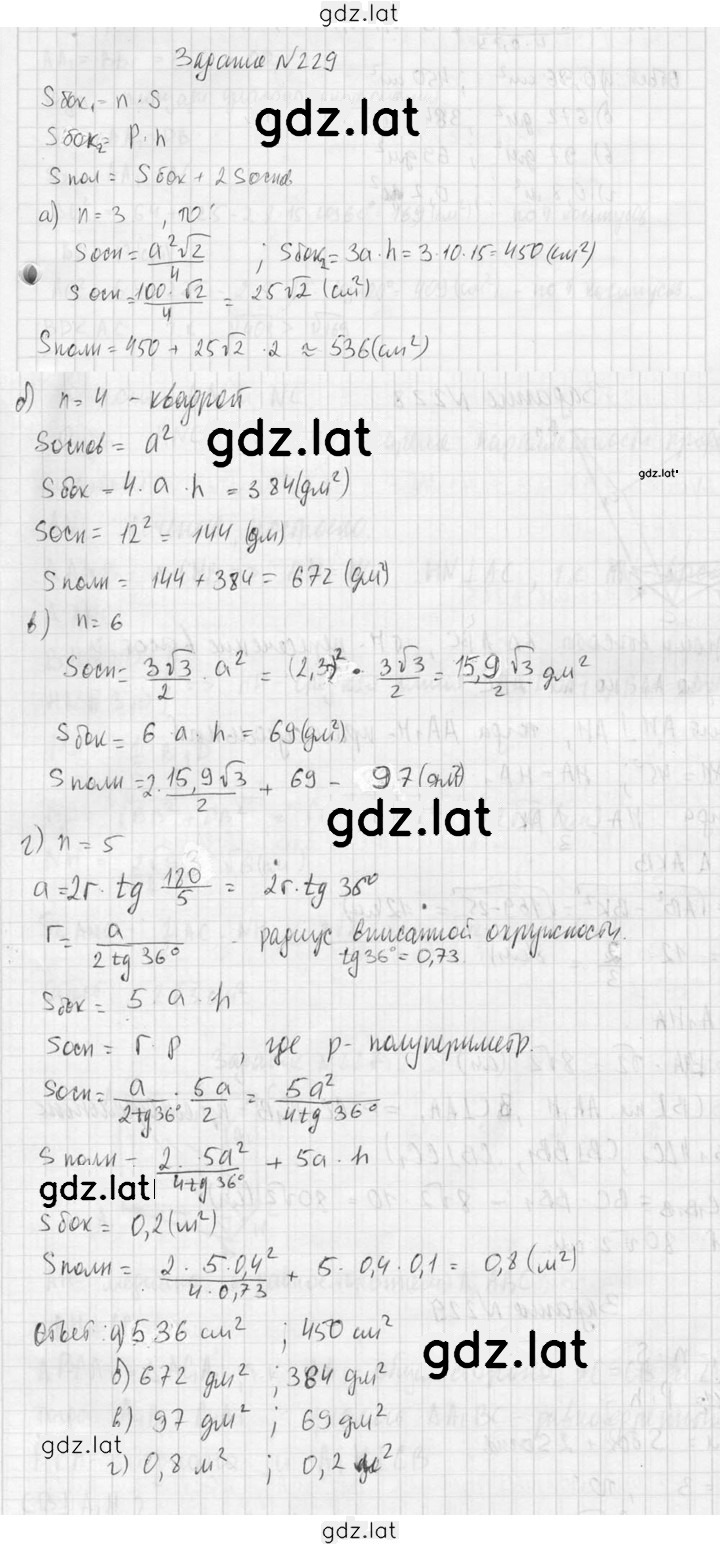 gdz.lat
Задание №229
Sбок₁ = n · S
Sбок₂ = P · h
gdz.lat
Sпол = Sбок + 2 Sоснов
а) n = 3 ,
Sосн = a²√2/4 ; Sбок₂ = 3a · h = 3·10·15 = 450 (см²)
Sосн = 100·√2/4 = 25√2 (см²)
Sполн = 450 + 25√2 · 2 ≈ 536 (см²)
б) n = 4 - квадрат
Sоснов = a²
gdz.lat
gdz.lat
Sбок = 4 · a · h = 384 (дм²)
Sосн = 12² = 144 (дм)
Sполн = 144 + 384 = 672 (дм²)
в) n = 6
Sосн = 3√3/2 · a² = (2,3)² · 3√3/2 = 15,9√3/2 дм²
Sбок = 6 · a · h = 69 (дм²)
Sполн = 2 · 15,9√3/2 + 69 - 97 (дм²)
gdz.lat
г) n = 5
a = 2r · tg 180/5 = 2r · tg 36°
r = a/2 tg 36° - радиус вписанной окружности.
tg 36° = 0,73
Sбок = 5 · a · h
Sосн = r · p , где p - полупериметр.
Sосн = a/2tg36° · 5a/2 = 5a²/4tg 36°
Sполн - 2 · 5a²/4tg 36° + 5a · h
gdz.lat
Sбок = 0,2 (м²)
Sполн = 2 · 5 · 0,4²/4 · 0,73 + 5 · 0,4 · 0,1 = 0,8 (м²)
Ответ: а) 536 см² ; 450 см²
б) 672 дм² ; 384 дм²
gdz.lat
в) 97 дм² ; 69 дм²
gdz.lat
г) 0,8 м² ; 0,2 м²
gdz.lat